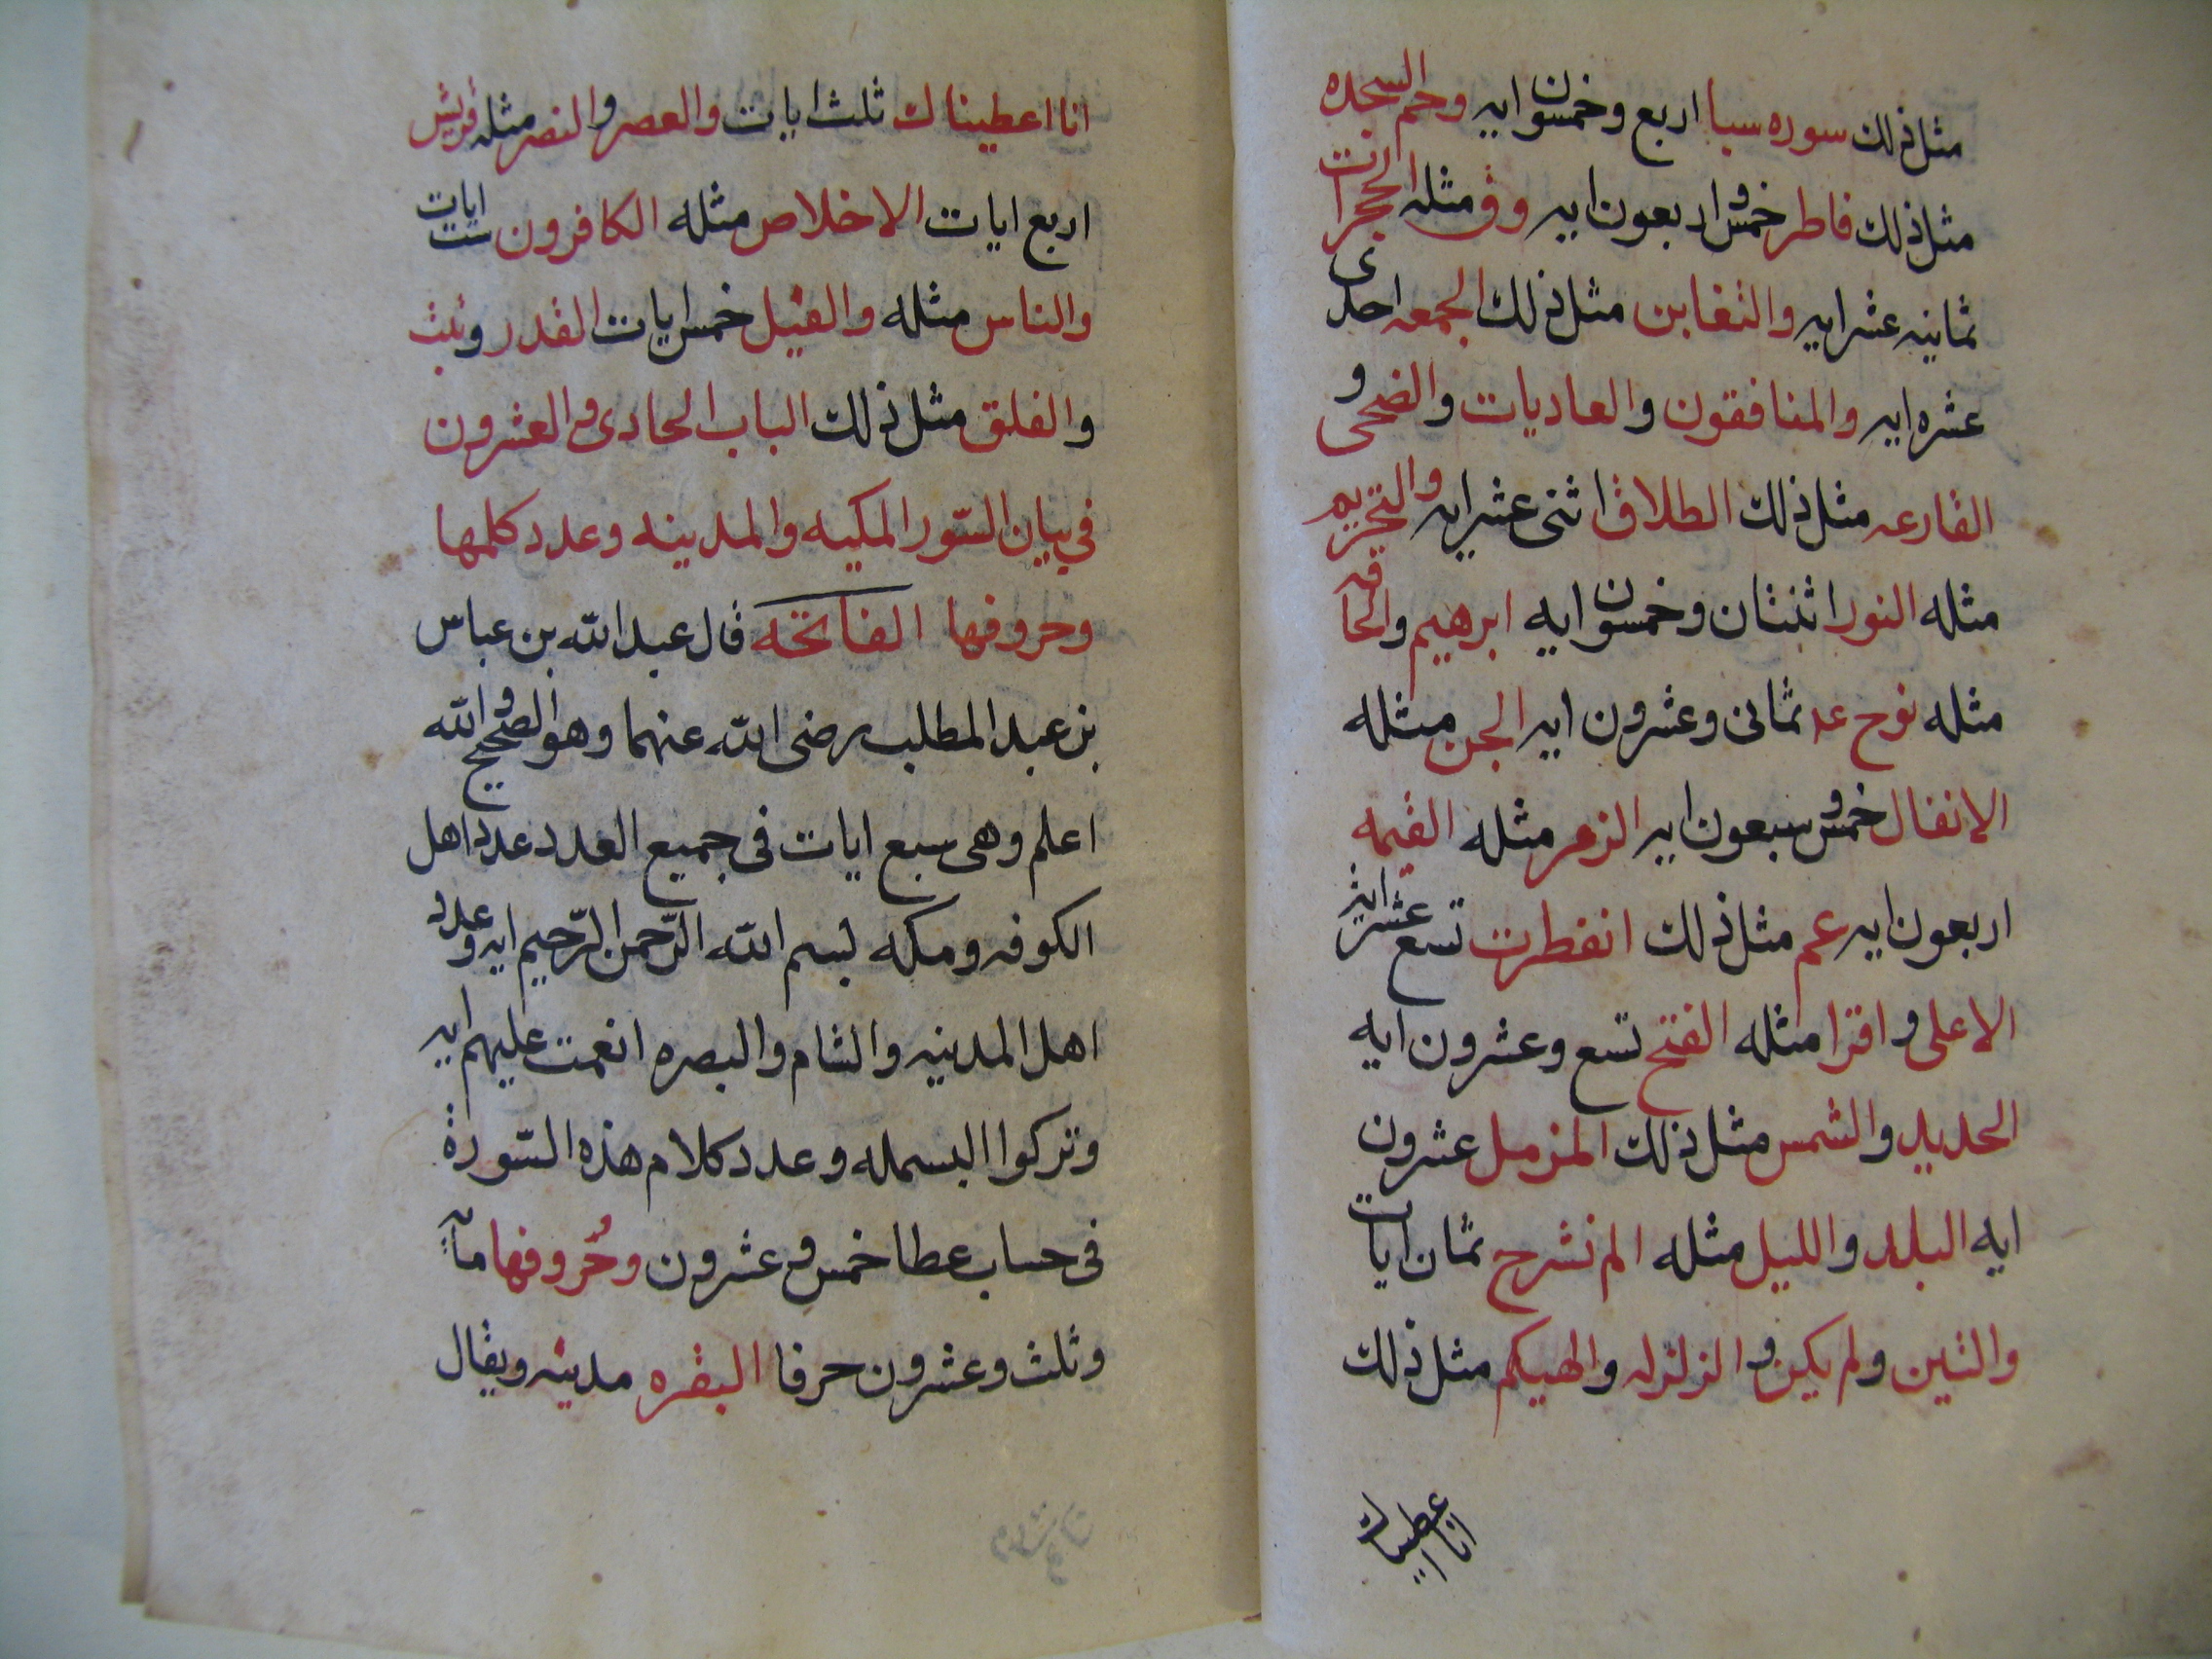 مثل ذلك سوره سبا اربع وخمسون ايه وحم السجده
مثل ذلك فاطر خمس و اربعون ايه وق مثله الحجرات
ثمانيه عشر ايه والتغابن مثل ذلك الجمعه احدى
عشره ايه والمنافقون والعاديات والضحى و
القارعه مثل ذلك الطلاق اثنى عشر ايه والتحريم
مثله النور اثنتان وخمسون ايه ابرهيم والحاقه
مثله نوح عد ثمانى وعشرون ايه الجن مثله
الانفال خمس و سبعون ايه الزمر مثله القيمه
اربعون ايه عم مثل ذلك انفطرت تسع عشر ايه
الاعلى و اقرا مثله الفتح تسع وعشرون ايه
الحديد والشمس مثل ذلك المزمل عشرون
ايه البلد والليل مثله الم نشرح ثمان ايات
والتين ولم يكن و الزلزله والهيكم مثل ذلك
انا اعطيناك
انا اعطيناك ثلث ايات والعصر والنصر مثله قريش
اربع ايات الاخلاص مثله الكافرون ست ايات
والناس مثله والفيل خمس ايات القدر وتبت
والفلق مثل ذلك الباب الحادى و العشرون
في بيان السّور المكيه والمدينه وعدد كلمها
وحروفها الفاتحه قال عبد الله بن عباس
بن عبد المطلب رضى الله عنهما وهو الصحيح و الله
اعلم وهى سبع ايات فى جميع العدد عدد اهل
الكوفه ومكه بسم الله الرّحمن الرّحيم ايه و عدد
اهل المدينه والشام والبصره انعمت عليهم ايه
وتركوا البسمله وعدد كلام هذه السّورة
فى حساب عطا خمس و عشرون وحُروفها مائه
وثلث وعشرون حرفا البقره مدينه ويقال